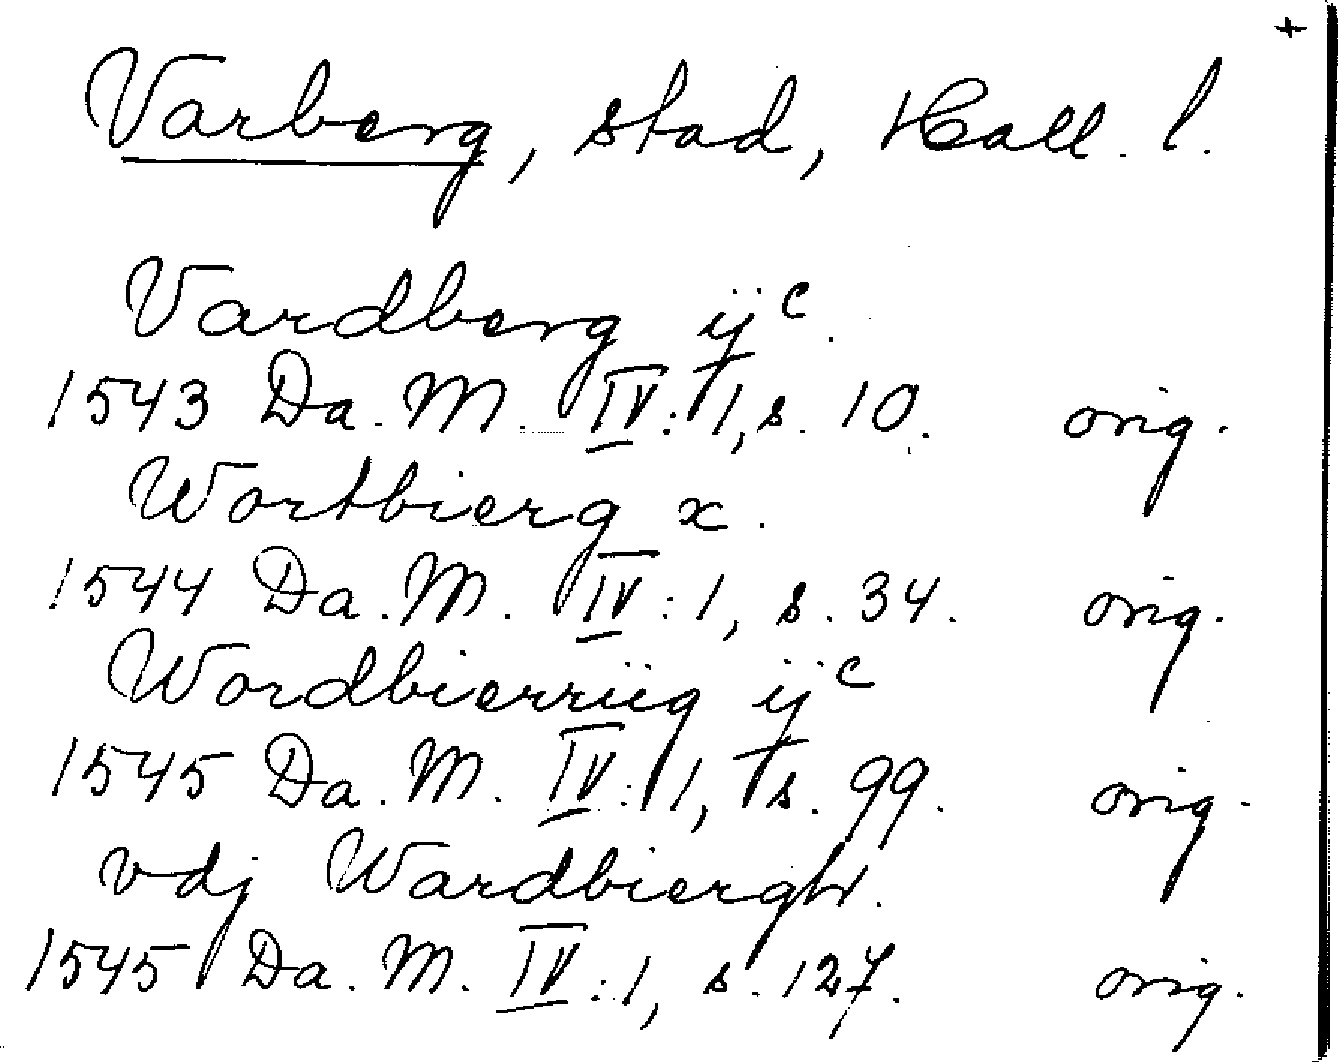 +
Varberg, stad, Hall. l.
Vardberg ijc.
1543 Da. M. IV:1, s. 10. orig.
Wortbierg x.
1544 Da. M. IV:1, s. 34. orig.
Wordbierriig ijc
1545 Da. M. IV:1, s. 99. orig.
vdj Wardbiergh.
1545 Da. M. IV:1, s. 127. orig.